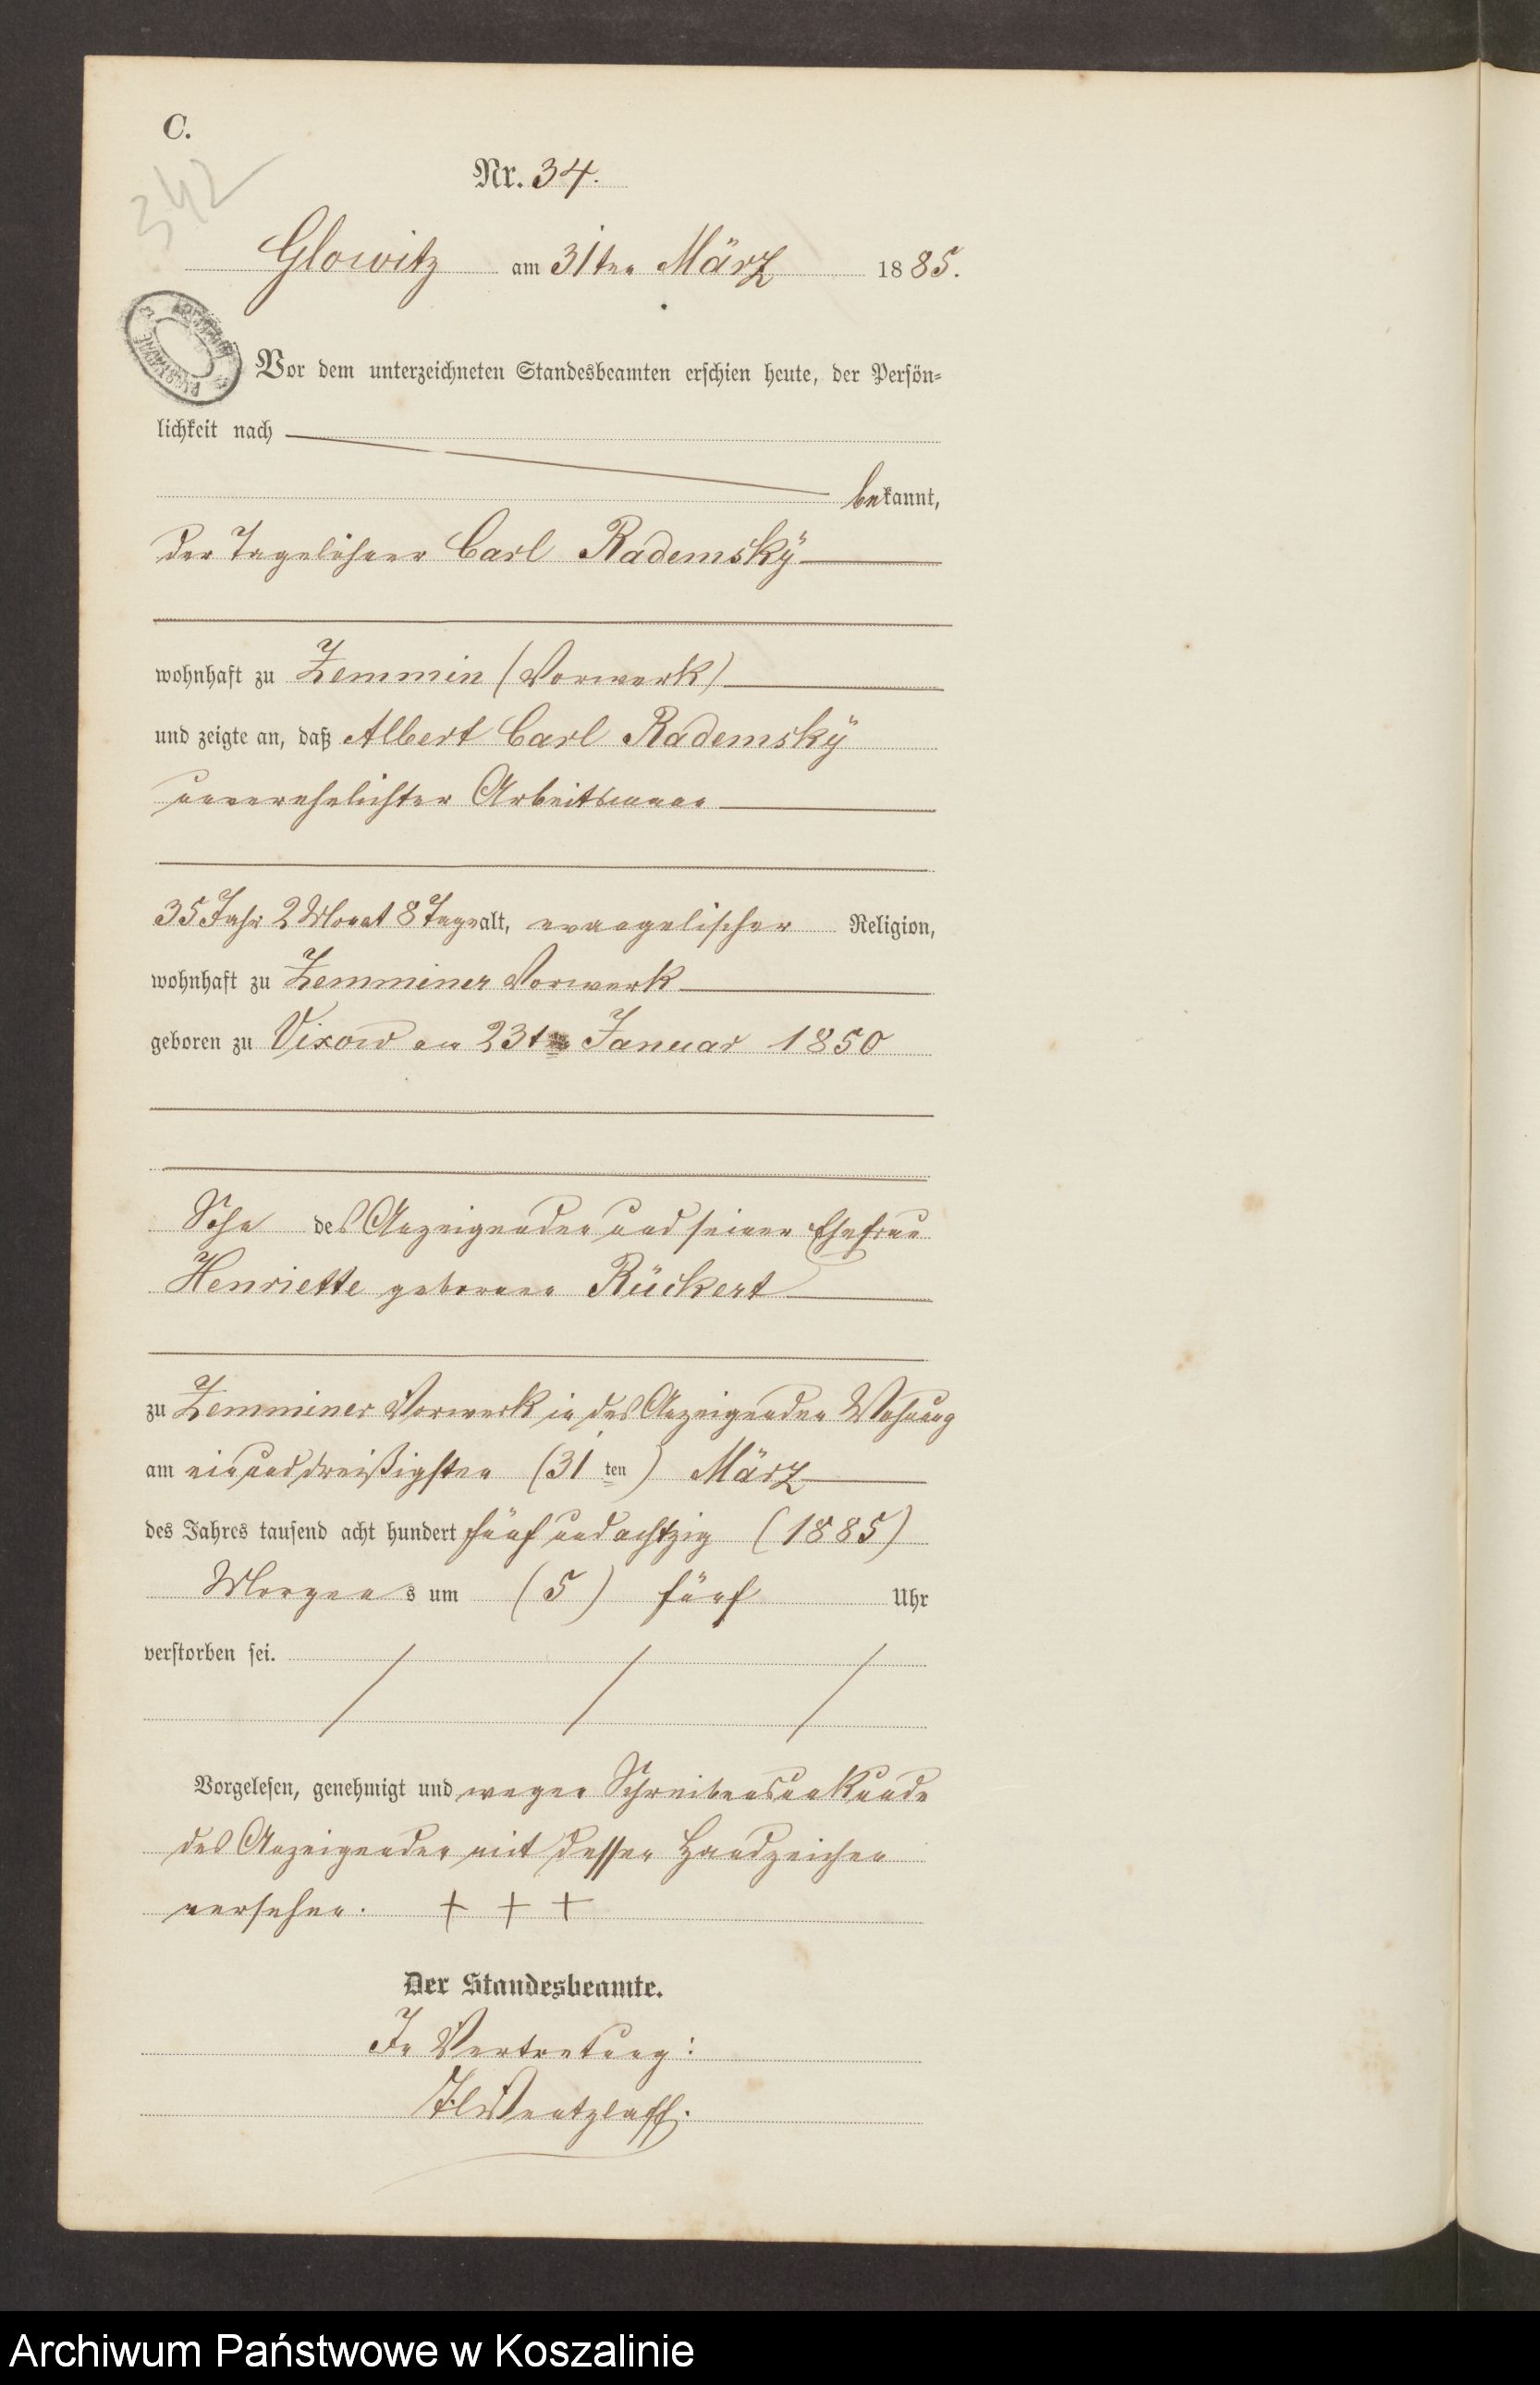 C.
342
Nr. 34.
Glowitz am 31ten März 1885.
Vor dem unterzeichneten Standesbeamten erschien heute, der Persön-
lichkeit nach
bekannt,
der Tagelöhner Carl Rademskÿ
wohnhaft zu Zemmin (Vorwerk)
und zeigte an, daß Albert Carl Rademskÿ
unverehelichter Arbeitsmann
35 Jahr 2 Monat 8 Tage alt, evangelischer Religion,
wohnhaft zu Zemminer Vorwerk
geboren zu Vixow am 23ten Januar 1850
Sohn des Anzeigenden und seiner Ehefrau
Henriette geborene Rückert
zu Zemminer Vorwerk in des Anzeigenden Wohnung
am einunddreißigsten (31 ten) März
des Jahres tausend acht hundert fünf und achtzig (1885)
Morgens um (5) fünf Uhr
verstorben sei.
Vorgelesen, genehmigt und wegen Schreibensunkunde
des Anzeigenden mit dessen Handzeichen
versehen. + + +
Der Standesbeamte.
In Vertretung:
Wentzlaff.
Archiwum Państwowe w Koszalinie